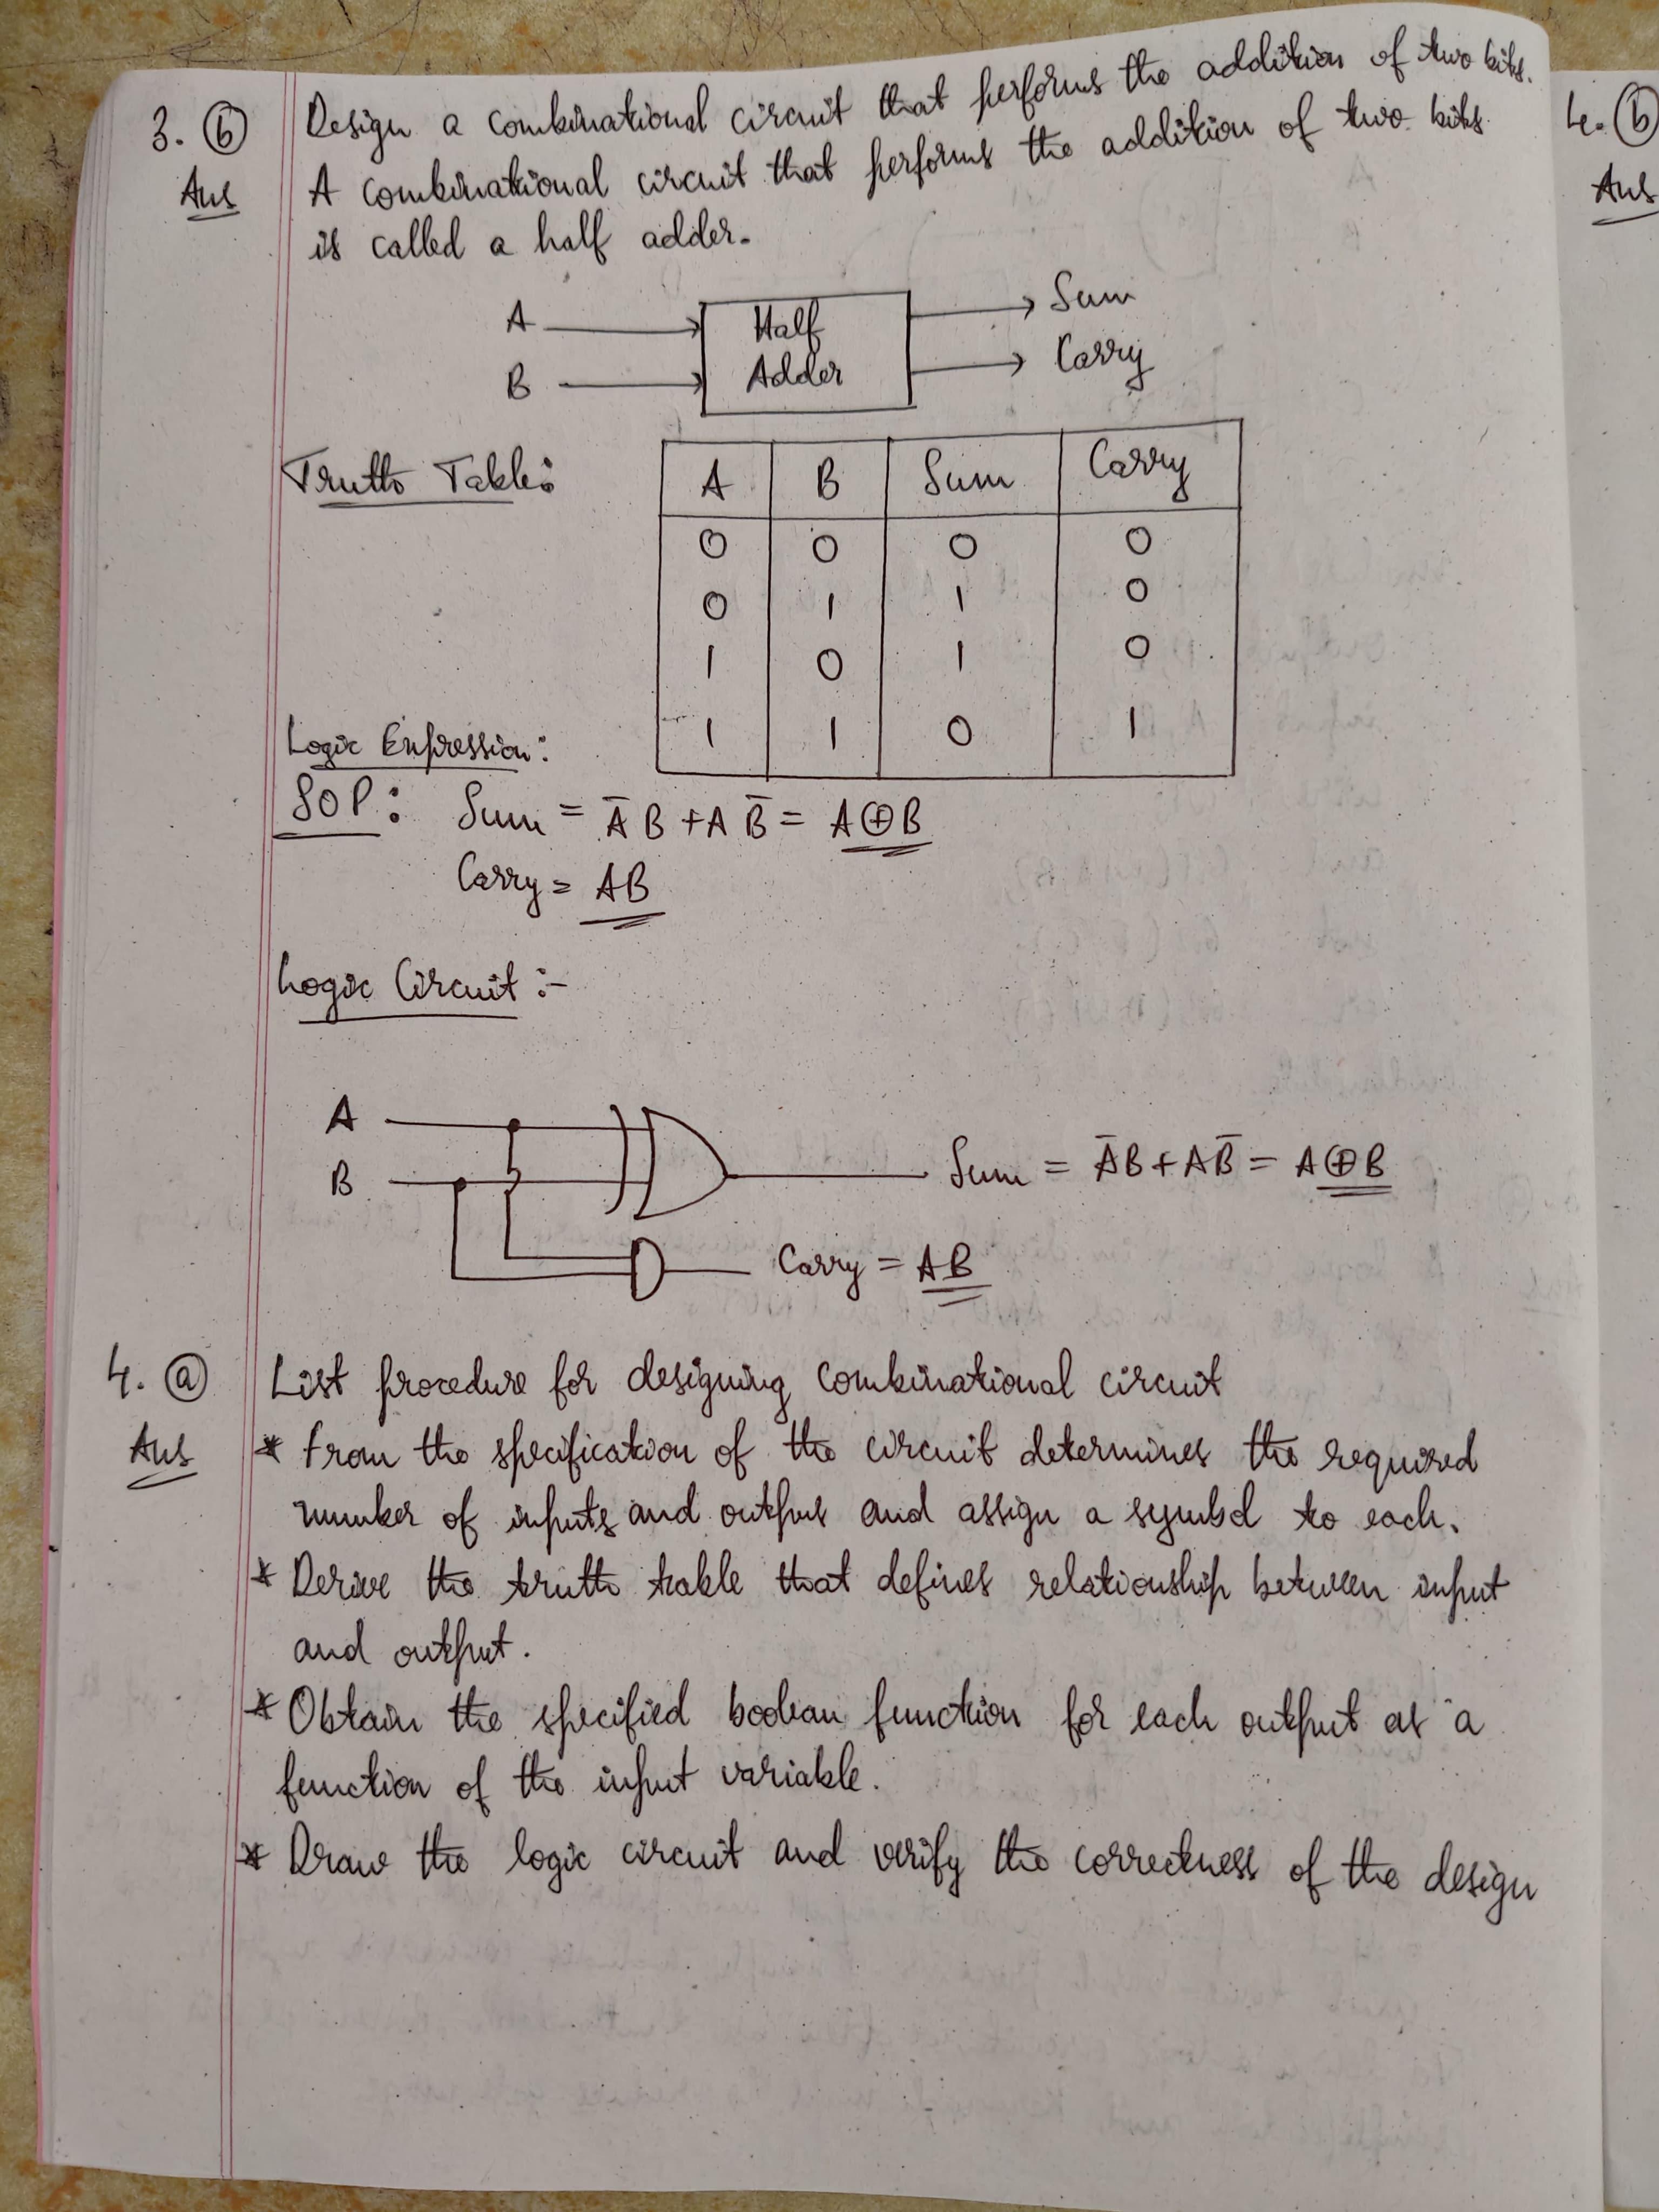 3. (b) Design a combinational circuit that performs the addition of two bits.
Ans A combinational circuit that performs the addition of two bits
is called a half adder.
A Half Sum
B Adder Carry
Truth Table:
A B Sum Carry
0 0 0 0
0 1 1 0
1 0 1 0
1 1 0 1
Logic Expression:
SOP: Sum = A̅B + AB̅ = A⊕B
Carry = AB
Logic Circuit :-
A
B Sum = A̅B + AB̅ = A⊕B
Carry = AB
4. (a) List procedure for designing combinational circuit
Ans * From the specification of the circuit determines the required
number of inputs and output and assign a symbol to each.
* Derive the truth table that defines relationship between input
and output.
* Obtain the specified boolean function for each output as a
function of the input variable.
* Draw the logic circuit and verify the correctness of the design
4. (b)
Ans